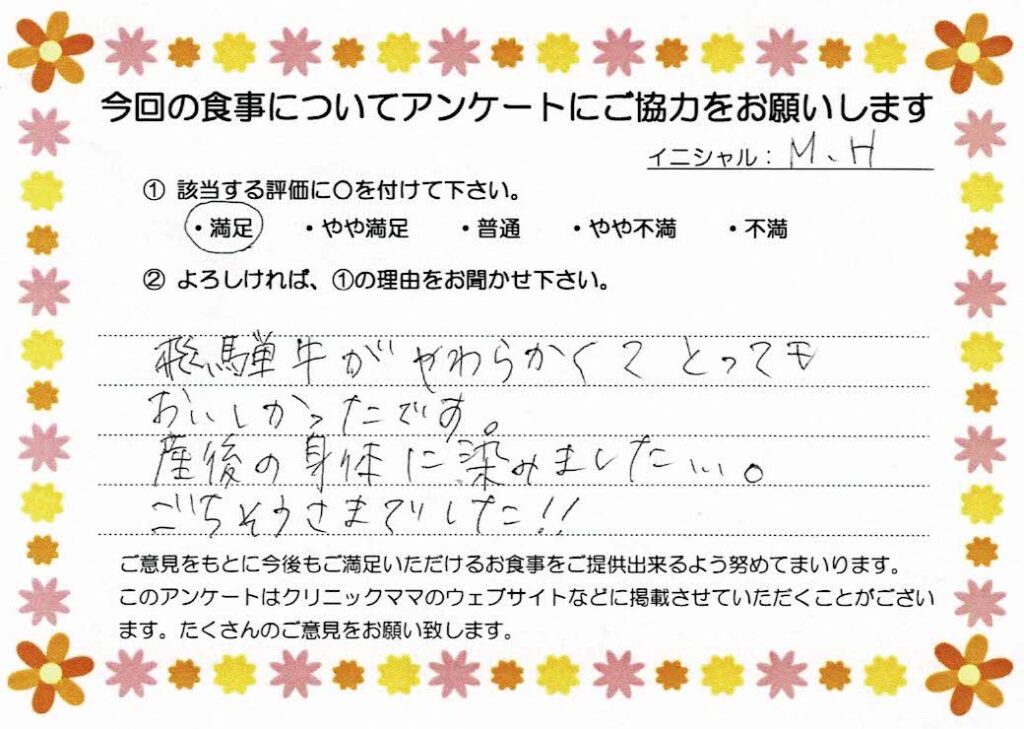 今回の食事についてアンケートにご協力をお願いします
イニシャル：M、H
① 該当する評価に〇を付けて下さい。
・満足 ・やや満足 ・普通 ・やや不満 ・不満
② よろしければ、①の理由をお聞かせ下さい。
飛騨牛がやわらかくてとっても
おいしかったです。
産後の身体に染みました…。
ごちそうさまでした!!
ご意見をもとに今後もご満足いただけるお食事をご提供出来るよう努めてまいります。
このアンケートはクリニックママのウェブサイトなどに掲載させていただくことがござい
ます。たくさんのご意見をお願い致します。